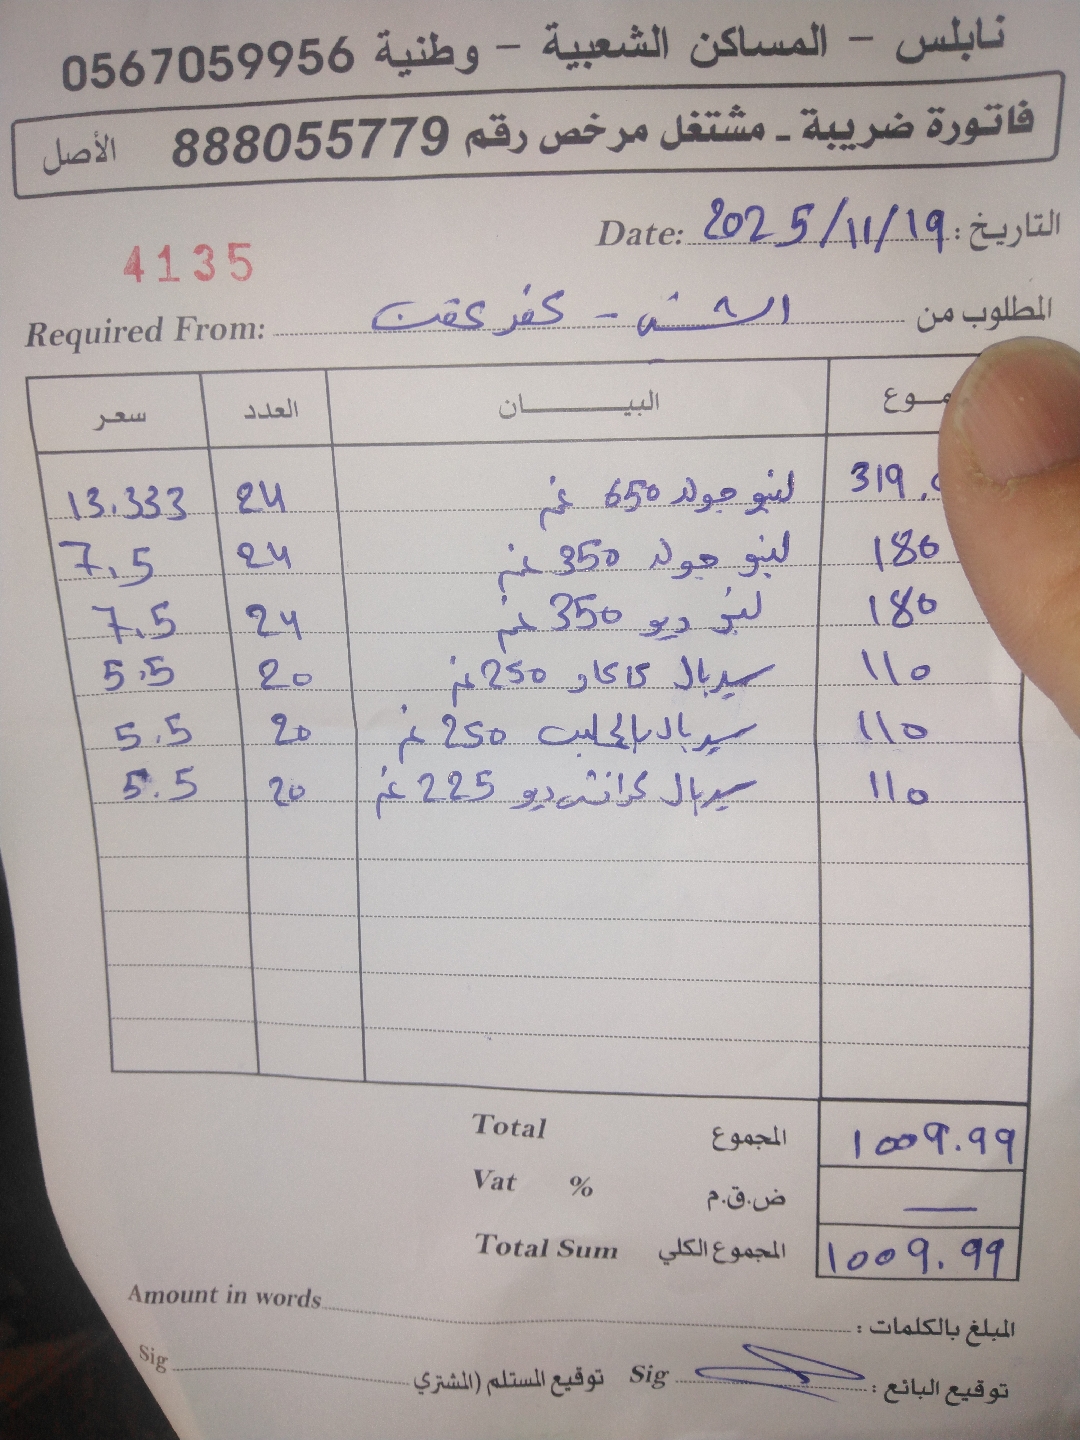 نابلس - المساكن الشعبية - وطنية 0567059956
فاتورة ضريبة - مشتغل مرخص رقم 888055779 الأصل
التاريخ : 2025/11/19 Date:
4135
المطلوب من - كفر عقب Required From:
موع البيـــــــان العدد سعر
319. لينو جولد 650 غم 24 13.333
180 لينو جولد 350 غم 24 7.5
180 لينو ديو 350 غم 24 7.5
110 سيريال كاكاو 250 غم 20 5.5
110 سيريال بالحليب 250 غم 20 5.5
110 سيريال كرانش ديو 225 غم 20 5.5
Total المجموع 1009.99
Vat % ض.ق.م —
Total Sum المجموع الكلي 1009.99
Amount in words المبلغ بالكلمات :
Sig توقيع المستلم (المشتري Sig توقيع البائع :